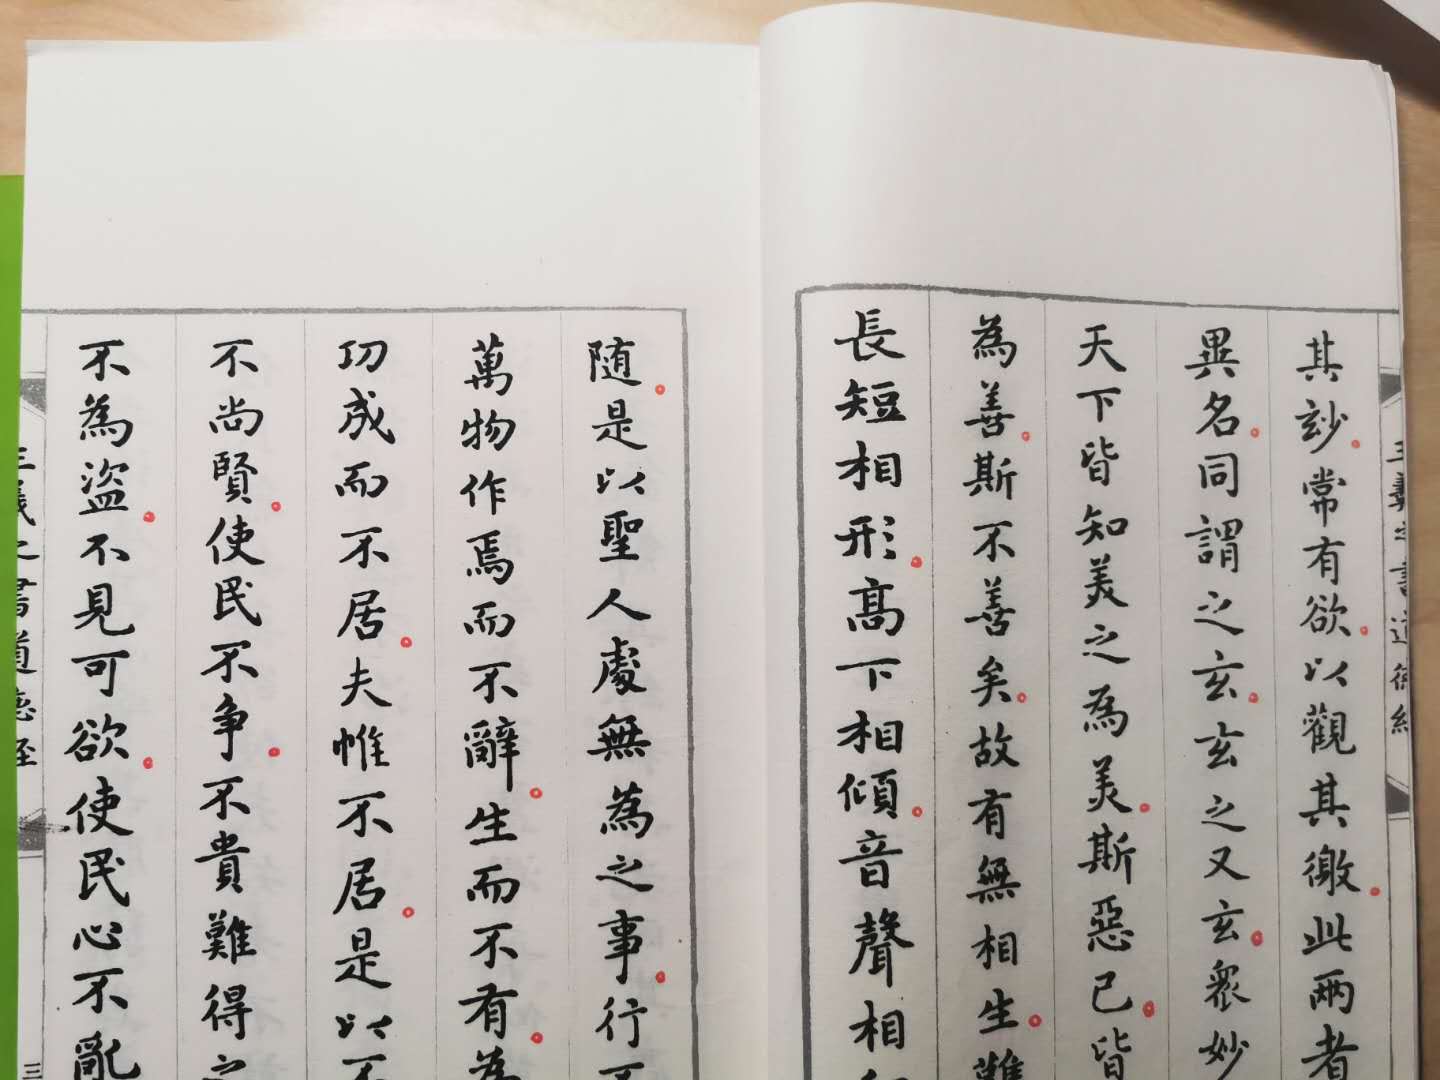 王羲之書道德經
其玅。常有欲。以觀其徼。此兩者
異名。同謂之玄。玄之又玄。眾妙
天下皆知美之為美。斯惡已。皆
為善。斯不善矣。故有無相生。難
長短相形。高下相傾。音聲相
随。是以聖人處無為之事。行
萬物作焉而不辭。生而不有。為
功成而不居。夫惟不居。是以不
不尚賢。使民不争。不貴難得之
不為盜。不見可欲。使民心不亂
王羲之書道德經
三